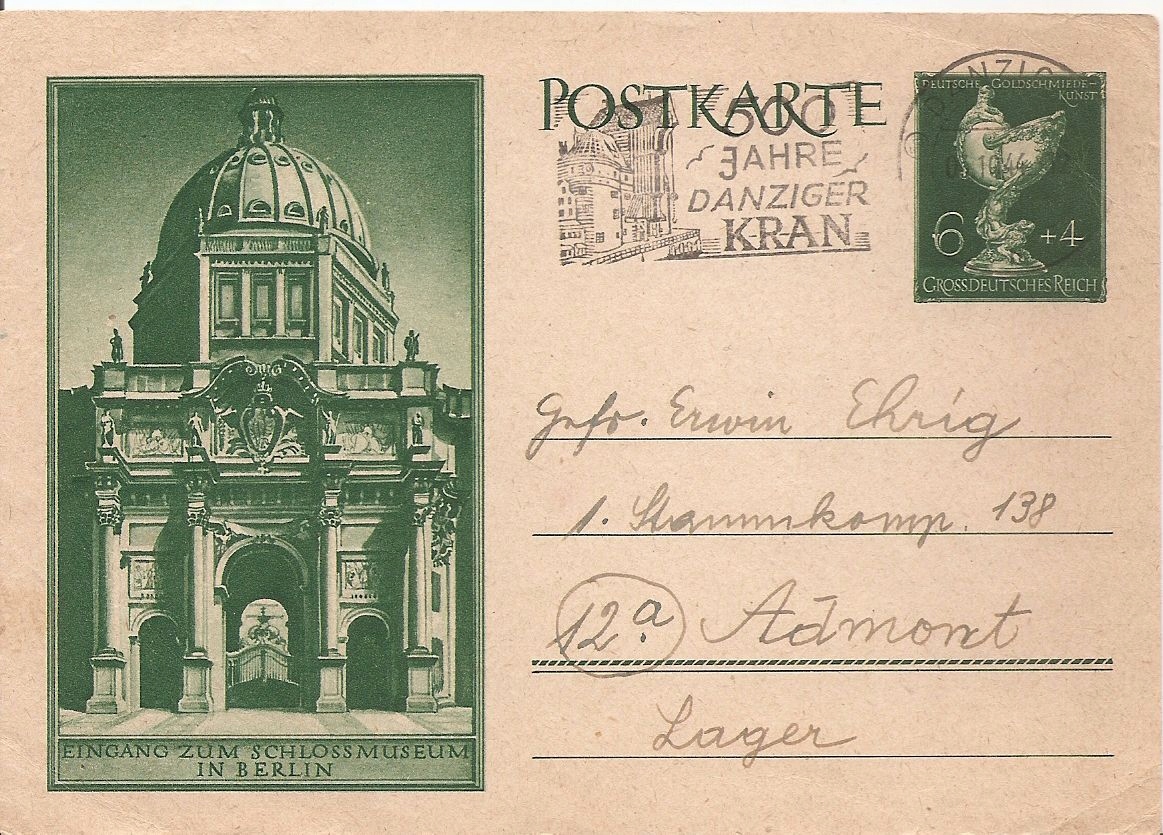 POSTKARTE
500
JAHRE
DANZIGER
KRAN
DANZIG
DEUTSCHE GOLDSCHMIEDE-
KUNST
6 +4
GROSSDEUTSCHES REICH
Gefr. Erwin Ehrig
1. Stammkomp. 138
12a Admont
Lager
EINGANG ZUM SCHLOSSMUSEUM
IN BERLIN